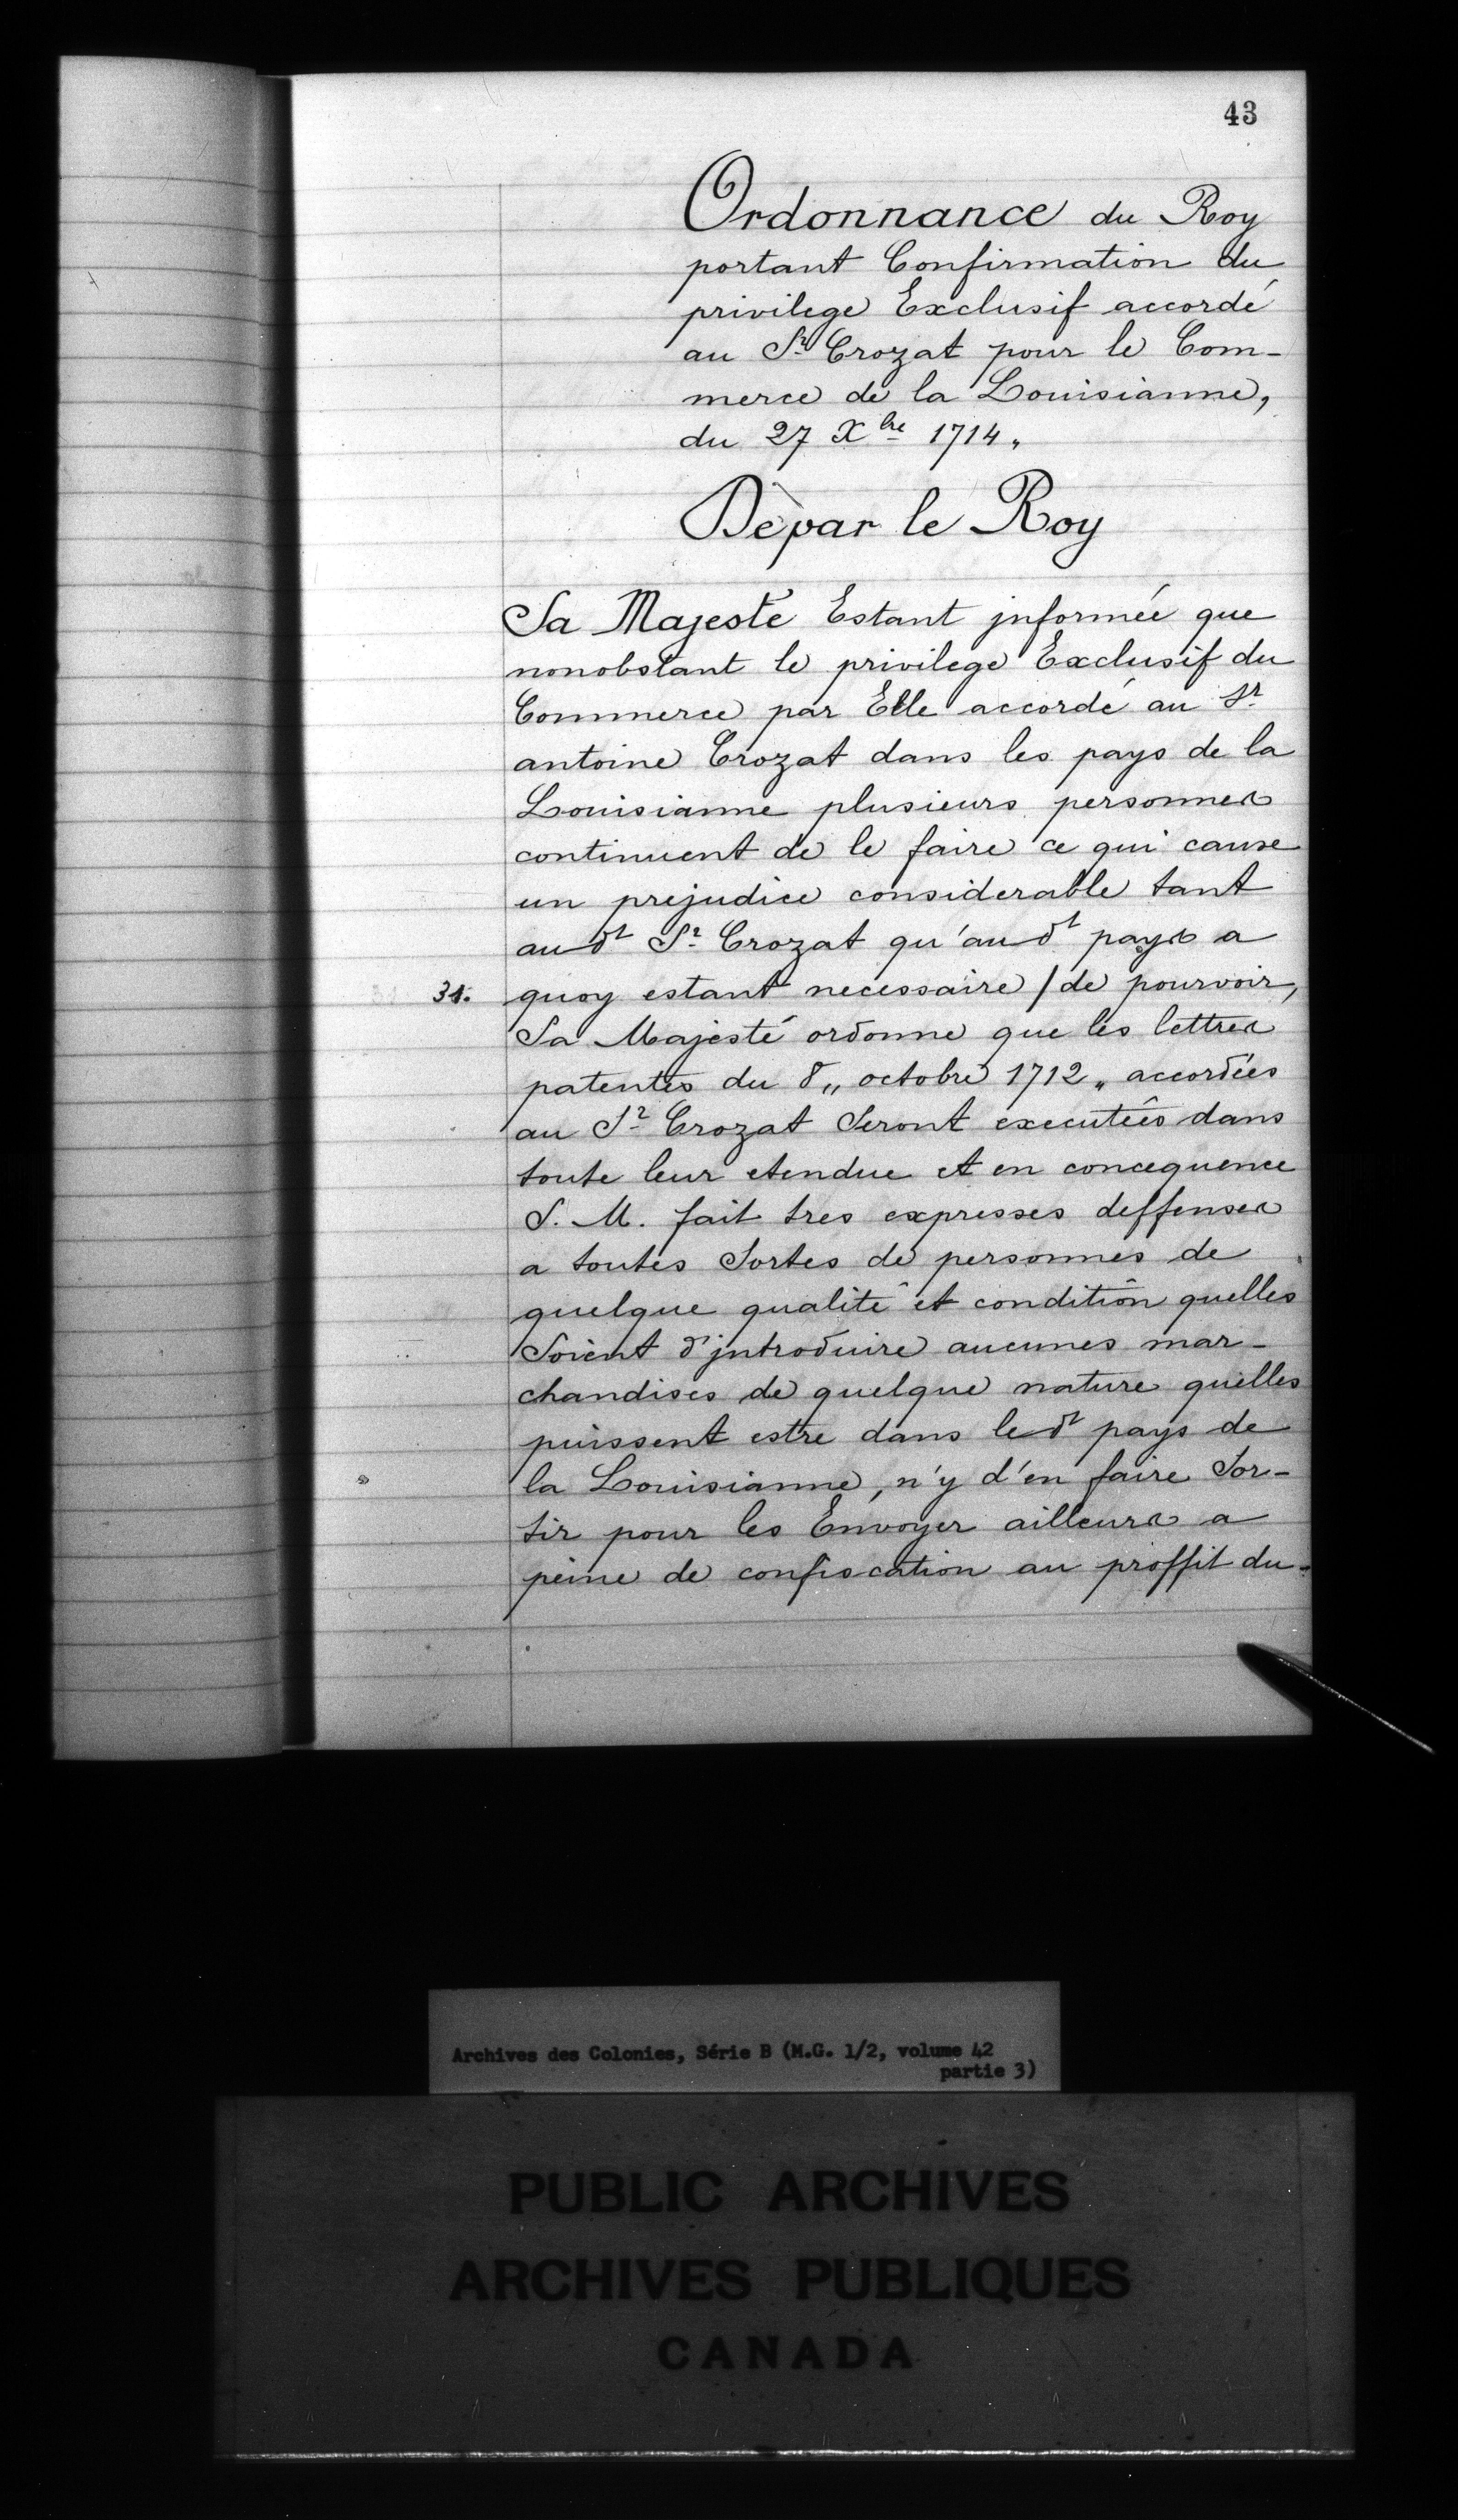 43
Ordonnance du Roy
portant Confirmation du
privilege Exclusif accordé
au Sr. Crozat pour le Com-
merce de la Louisianne,
du 27 Xbre 1714.
De par le Roy
Sa Majesté Estant jnformée que
nonobstant le privilege Exclusif du
Commerce par Elle accordé au Sr.
antoine Crozat dans les pays de la
Louisianne plusieurs personnes
continuent de le faire ce qui cause
un prejudice considerable tant
audt Sr. Crozat qu'audt pays a
31. quoy estant necessaire / de pourvoir,
Sa Majesté ordonne que les lettres
patentes du 8,, octobre 1712,, accordées
au Sr. Crozat Seront executées dans
toute leur etendue et en concequence
S. M. fait tres expresses deffenses
a toutes Sortes de personnes de
quelque qualité et condition quelles
Soient d'jntroduire aucunes mar-
chandises de quelque nature quelles
puissent estre dans ledt pays de
la Louisianne, n'y d'en faire Sor-
tir pour les Envoyer ailleurs a
peine de confiscation au proffit du-
Archives des Colonies, Série B (M.G. 1/2, volume 42
partie 3)
PUBLIC ARCHIVES
ARCHIVES PUBLIQUES
CANADA